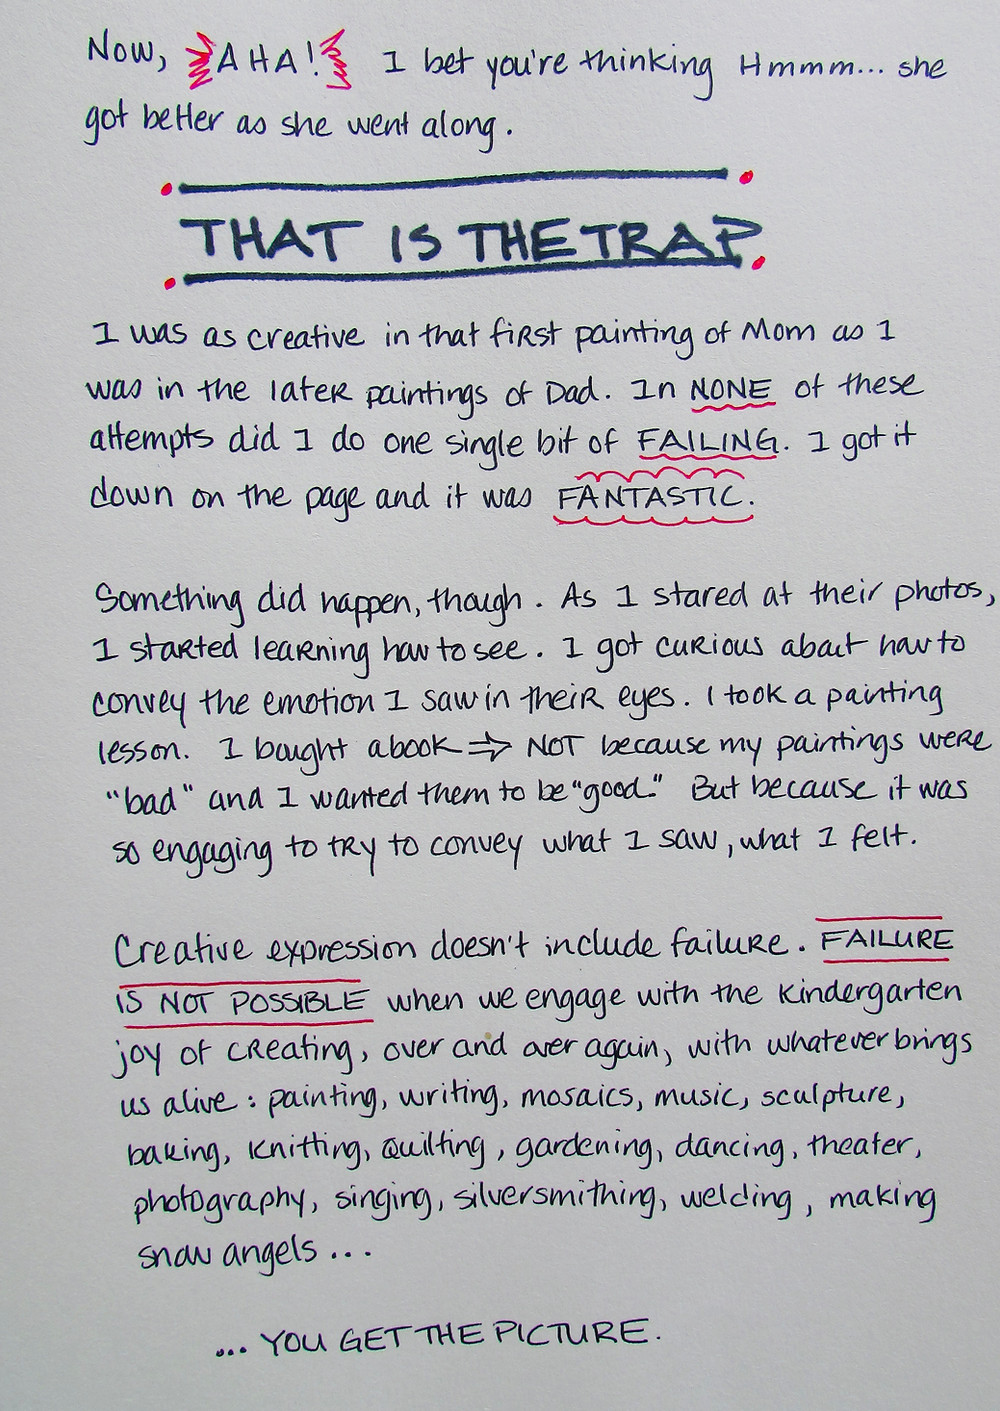 Now, AHA! I bet you're thinking Hmmm... she
got better as she went along.
THAT IS THE TRAP
I was as creative in that first painting of Mom as I
was in the later paintings of Dad. In NONE of these
attempts did I do one single bit of FAILING. I got it
down on the page and it was FANTASTIC.
Something did happen, though. As I stared at their photos,
I started learning how to see. I got curious about how to
convey the emotion I saw in their eyes. I took a painting
lesson. I bought a book ⇒ NOT because my paintings were
"bad" and I wanted them to be "good." But because it was
so engaging to try to convey what I saw, what I felt.
Creative expression doesn't include failure. FAILURE
IS NOT POSSIBLE when we engage with the kindergarten
joy of creating, over and over again, with whatever brings
us alive: painting, writing, mosaics, music, sculpture,
baking, knitting, quilting, gardening, dancing, theater,
photography, singing, silversmithing, welding, making
snow angels...
... YOU GET THE PICTURE.